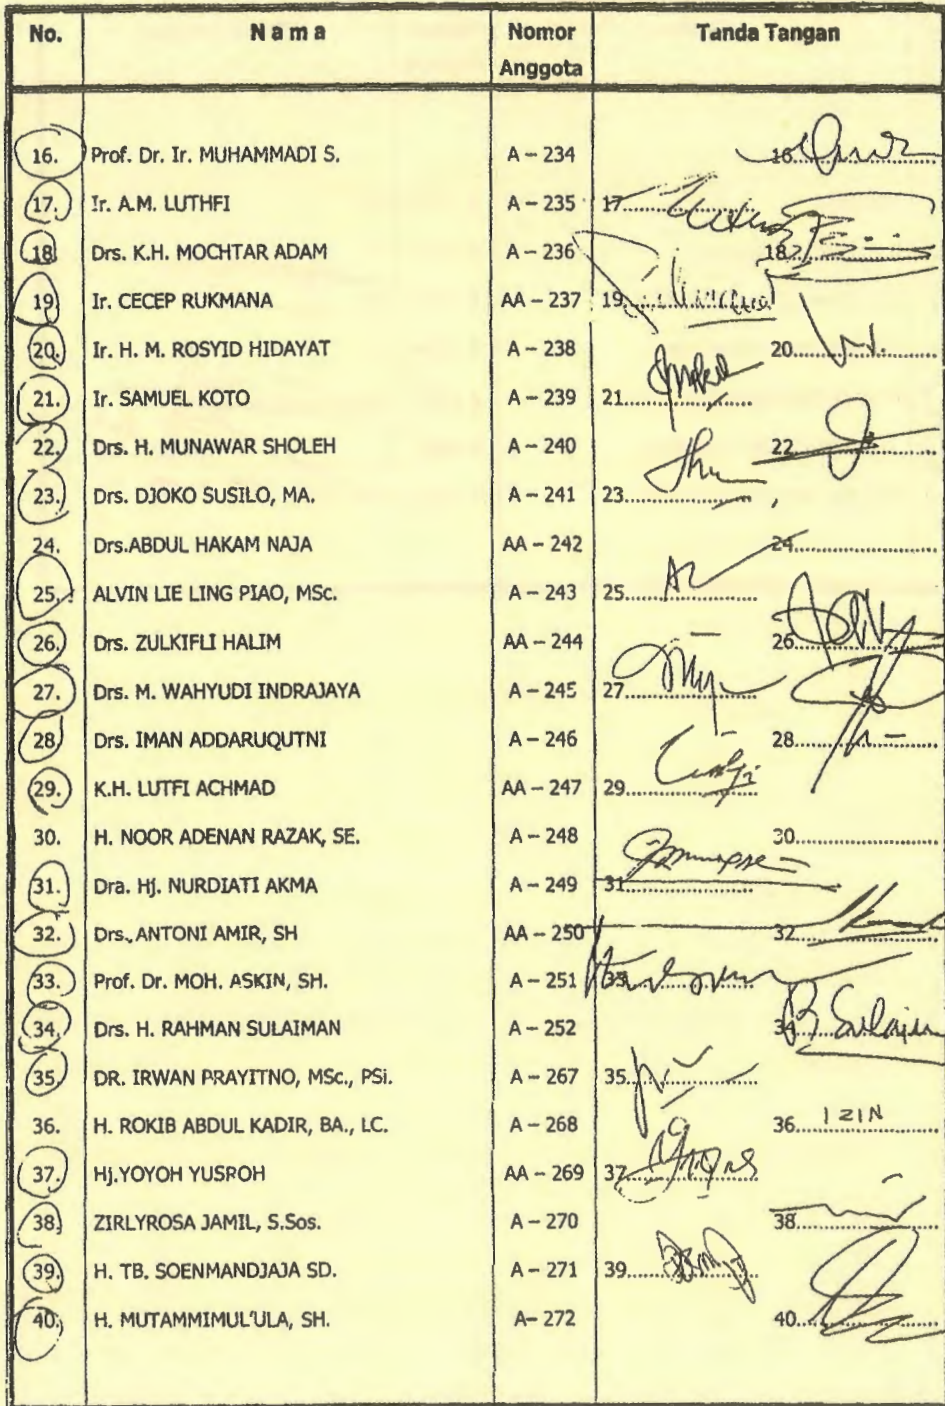 No. N a m a Nomor Anggota Tanda Tangan
16. Prof. Dr. Ir. MUHAMMADI S. A – 234 16.
17. Ir. A.M. LUTHFI A – 235 17.
18. Drs. K.H. MOCHTAR ADAM A – 236 18.
19. Ir. CECEP RUKMANA AA – 237 19.
20. Ir. H. M. ROSYID HIDAYAT A – 238 20.
21. Ir. SAMUEL KOTO A – 239 21.
22. Drs. H. MUNAWAR SHOLEH A – 240 22.
23. Drs. DJOKO SUSILO, MA. A – 241 23.
24. Drs.ABDUL HAKAM NAJA AA – 242 24.
25. ALVIN LIE LING PIAO, MSc. A – 243 25.
26. Drs. ZULKIFLI HALIM AA – 244 26.
27. Drs. M. WAHYUDI INDRAJAYA A – 245 27.
28. Drs. IMAN ADDARUQUTNI A – 246 28.
29. K.H. LUTFI ACHMAD AA – 247 29.
30. H. NOOR ADENAN RAZAK, SE. A – 248 30.
31. Dra. Hj. NURDIATI AKMA A – 249 31.
32. Drs. ANTONI AMIR, SH AA – 250 32.
33. Prof. Dr. MOH. ASKIN, SH. A – 251 33.
34. Drs. H. RAHMAN SULAIMAN A – 252 34.
35. DR. IRWAN PRAYITNO, MSc., PSi. A – 267 35.
36. H. ROKIB ABDUL KADIR, BA., LC. A – 268 36. IZIN
37. Hj.YOYOH YUSROH AA – 269 37.
38. ZIRLYROSA JAMIL, S.Sos. A – 270 38.
39. H. TB. SOENMANDJAJA SD. A – 271 39.
40. H. MUTAMMIMUL'ULA, SH. A– 272 40.